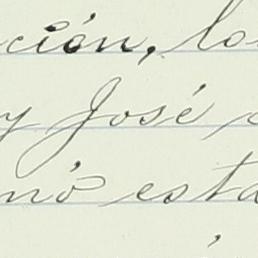 ción, lo
y José
nó esta